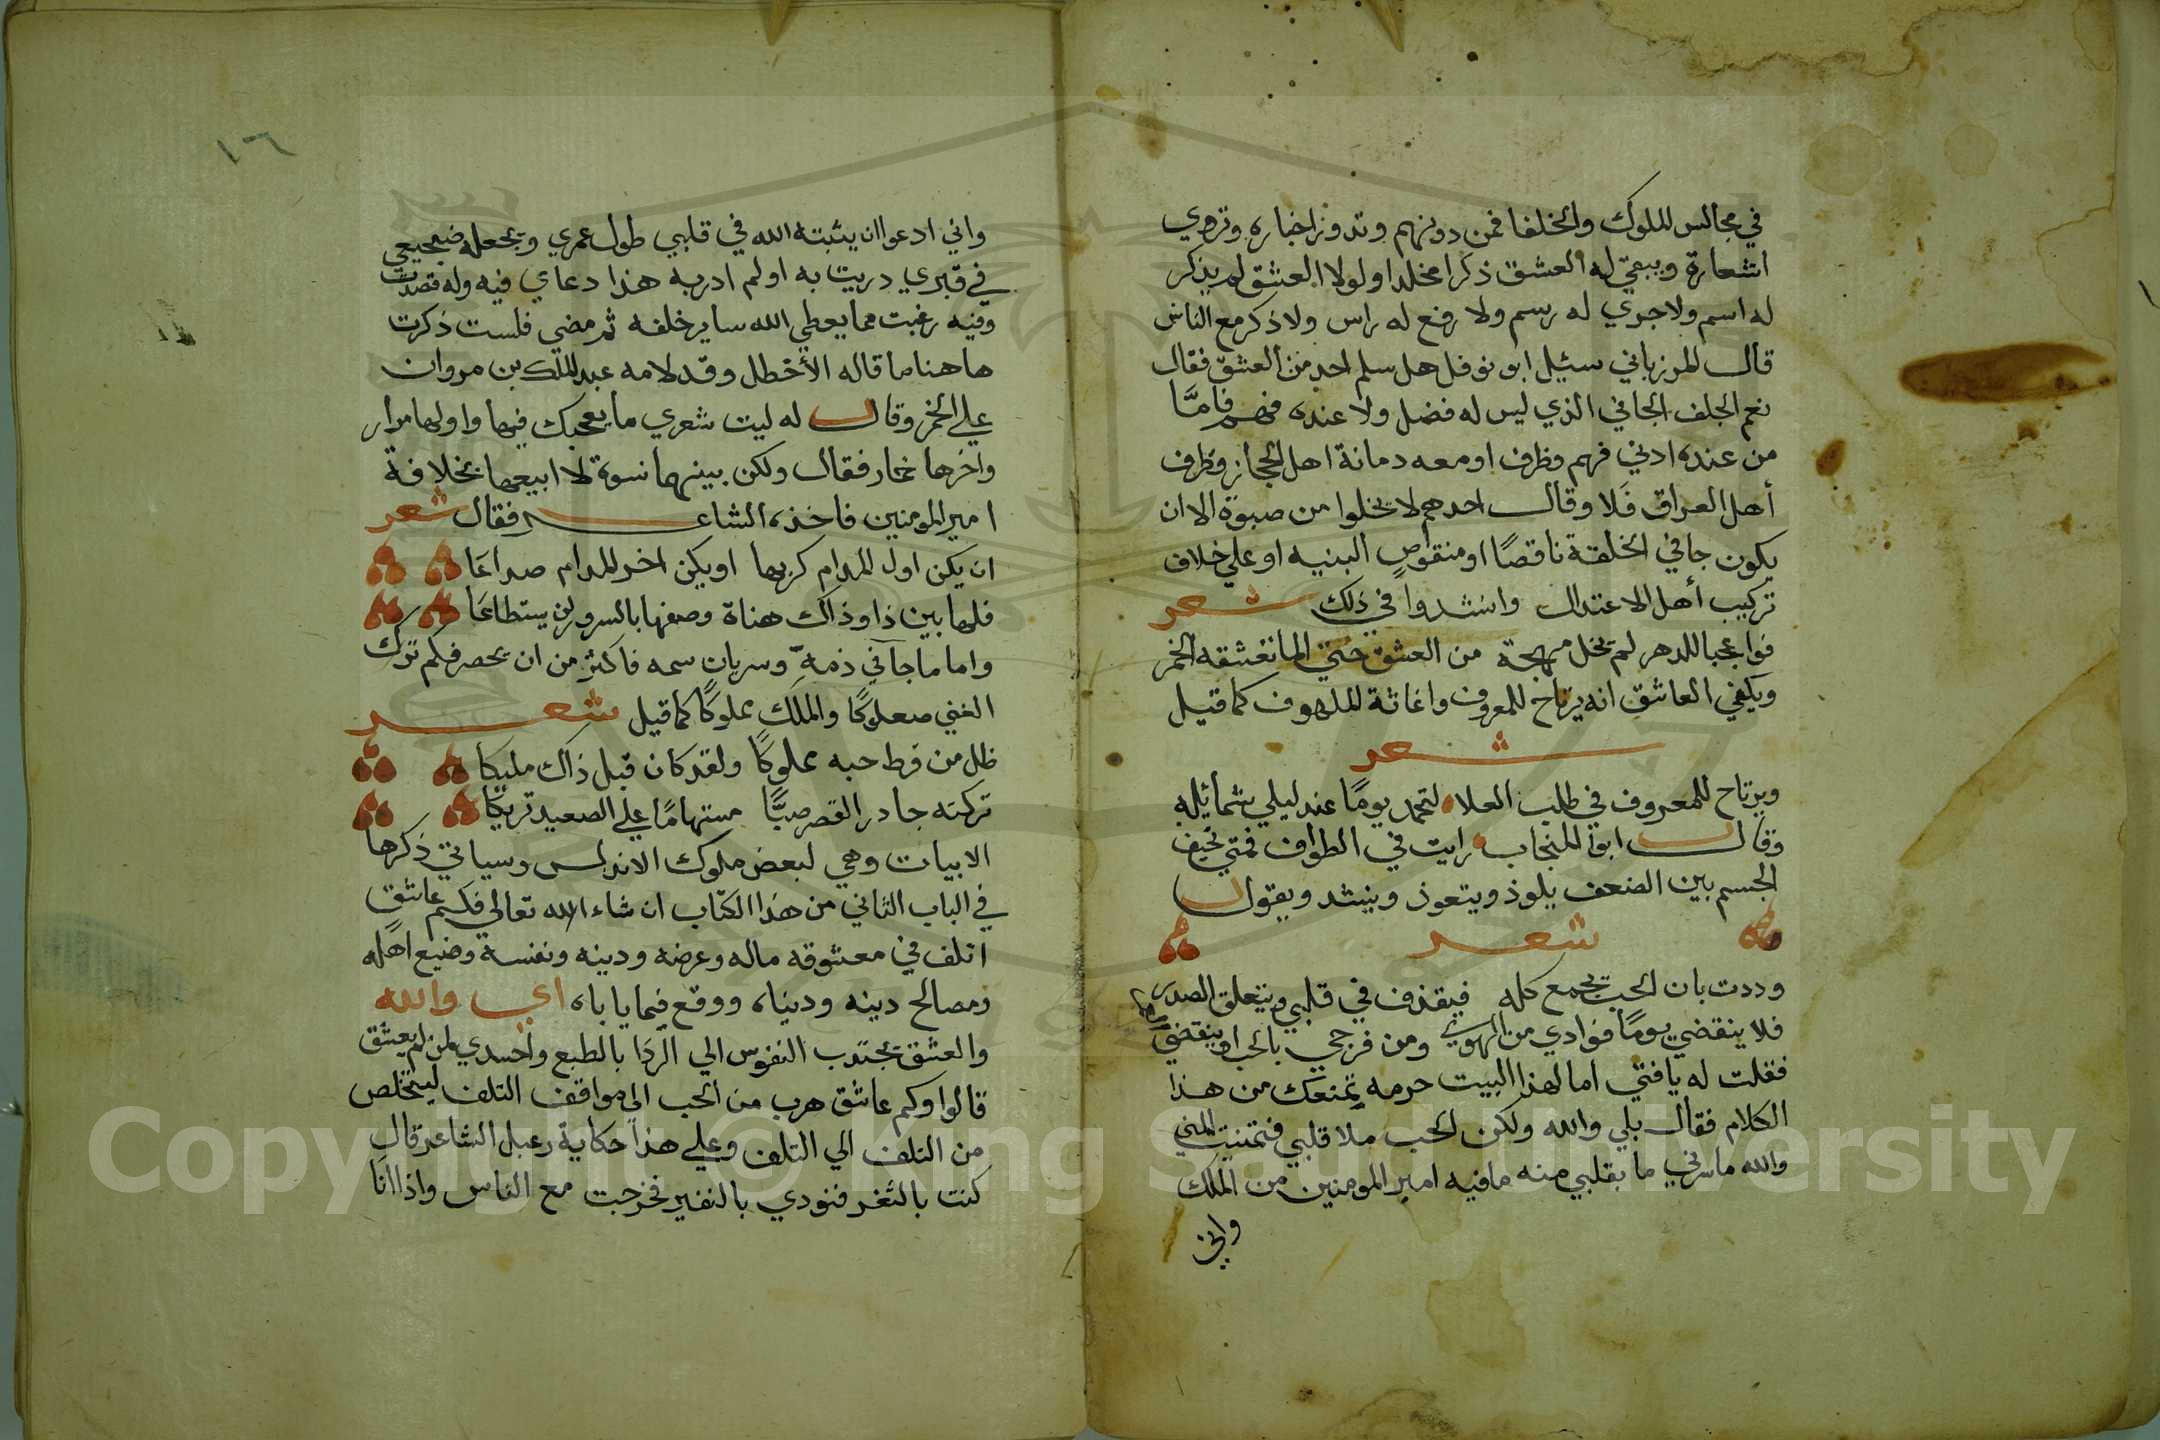 في مجالس الملوك والخلفا فمن دونهم وتدون اخباره وتروي
اشعاره ويبقي له العشق ذكرا مخلدا ولولا العشق لم يذكر
له اسم ولا جري له رسم ولا رفع له راس ولا ذكر مع الناس
قال المرزباني سئيل ابو نوفل هل سلم احد من العشق فقال
نعم الجلف الجافي الذي ليس له فضل ولا عنده فهم فامّا
من عنده ادني فهم وظرف او معه دماثة اهل الحجاز وظرف
أهل العراق فَلا وقال احدهم لا يخلوا من صبوة الا ان
يكون جافي الخلقة ناقصًا او منقوص البنيه او علي خلاف
تركيب أهل الاعتدال وانشدوا في ذلك شعر
فوا عجبا للدهر لم تخل مهجة من العشق حتي الما تعشقه الخمر
ويكفي العاشق انه يرتاح للمعروف واغاثة الملهوف كما قيل
شعر
ويرتاح للمعروف في طلب العلا لتحمد يومًا عند ليلي شمائيله
وقال ابو المنجاب رايت في الطواف فتي نحيف
الجسم بين الضعف يلوذ ويتعوذ وينشد ويقول
شعر
وددت بان الحب يجمع كله فيقذف في قلبي وينغلق الصدر
فلا ينقضي يومًا فوادي من الهوي ومن فرحي بالحب او ينقضي
فقلت له يا فتي اما لهذا البيت حرمه تمنعك من هذا
الكلام فقال بلي والله ولكن الحب ملا قلبي فتمنيت المني
والله ما سرني ما بقلبي منه مافيه امير المومنين من الملك
واني
١٦
واني ادعوا ان يثبته الله في قلبي طول عمري ويجعله ضجيعي
في قبري دريت به او لم ادر به هذا دعاي فيه وله قصدت
وفيه رغبت مما يعطي الله ساير خلقه ثم مضي فلست ذكرت
هاهنا ما قاله الأخطل وقد لامه عبد الملك بن مروان
علي الخمر وقال له ليت شعري ما يعجبك فيها واولها مرار
واخرها خمار فقال ولكن بينهما نسوة لا ابيعها بخلافة
امير المومنين فاخذه الشاعر فقال شعر
ان يكن اول المدام كريها او يكن اخر المدام صداعَا
فلها بين ذا وذاك هناة وصفها بالسرور لن يستطاعَا
واما ما جآ في ذمهِ وسريان سمه فاكثر من ان يحصر فكم ترك
الغني صعلوكًا والملك مملوكًا كما قيل شعر
ظل من فرط حبه مملوكًا ولقد كان قبل ذاك مليكا
تركته جادر القصر صبًّا مستهامًا علي الصعيد تريكًا
الابيات وهي لبعض ملوك الاندلس وسياتي ذكرها
في الباب الثاني من هذا الكتاب ان شاء الله تعالي فكم عاشق
اتلف في معشوقه ماله وعرضه ودينه ونفسة وضيع اهله
ومصالح دينه ودنياه ووقع فيما ياباه اي والله
والعشق يجتدب النفوس الي الردَا بالطبع واحسدي لمن لم يعشق
قالوا وكم عاشق هرب من الحب الي مواقف التلف ليتخلص
من التلف الي التلف وعلي هذا حكاية دعبل الشاعر قال
كنت بالثغر فنودي بالنفير فخرجت مع الناس واذا انَا
Copyright © King Saud University